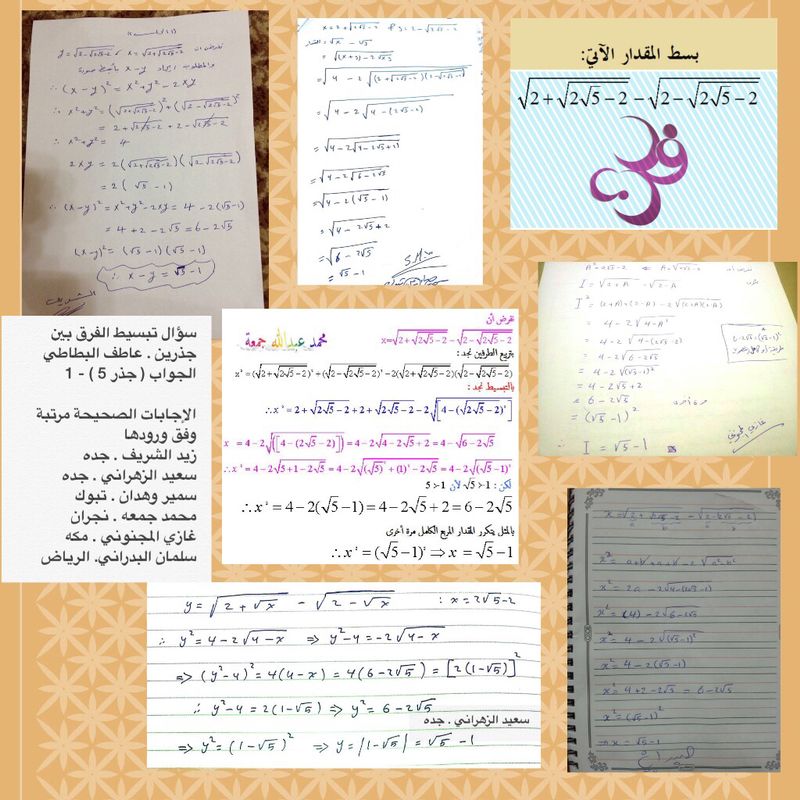 بسط المقدار الآتيّ:
√(2+√(2√5−2)) − √(2−√(2√5−2))
∴ (x−y)² = x²+y²−2xy
∴ x²+y² = (√(2+√(2√5−2)))² + (√(2−√(2√5−2)))²
= 2+√(2√5−2) + 2−√(2√5−2)
∴ x²+y² = 4
2xy = 2(√(2+√(2√5−2)))(√(2−√(2√5−2)))
= 2(√5−1)
∴ (x−y)² = x²+y²−2xy = 4−2(√5−1)
= 4+2−2√5 = 6−2√5
(x−y)² = (√5−1)(√5−1)
∴ x−y = √5−1
الشريف
= √(4−2√(4−(2√5−2)))
= √(4−2√(6−2√5))
= √(4−2(√5−1))
= √(4−2√5+2)
= √(6−2√5)
= √5−1
سؤال تبسيط الفرق بين
جذرين . عاطف البطاطي
الجواب ( جذر 5 ) - 1
الإجابات الصحيحة مرتبة
وفق ورودها
زيد الشريف . جده
سعيد الزهراني . جده
سمير وهدان . تبوك
محمد جمعه . نجران
غازي المجنوني . مكه
سلمان البدراني. الرياض
نفرض أن
محمد عبدالله جمعة
x=√(2+√(2√5−2))−√(2−√(2√5−2))
بتربيع الطرفين نجد :
x²=(√(2+√(2√5−2)))²+(√(2−√(2√5−2)))²−2(√(2+√(2√5−2)))(√(2−√(2√5−2)))
بالتبسيط نجد :
∴x²=2+√(2√5−2)+2−√(2√5−2)−2√[4−(√(2√5−2))²]
x²=4−2√([4−(2√5−2)])=4−2√(4−2√5+2)=4−√(6−2√5)
∴x²=4−2√(5+1−2√5)=4−2√((√5)²+(1)²−2√5)=4−2√((√5−1)²)
∴x²=4−2(√5−1)=4−2√5+2=6−2√5
بالمثل يتكرر المقدار المربع الكامل مرة أخرى
∴x²=(√5−1)²⇒x=√5−1
I = √(2+A) − √(2−A)
I² = (2+A)+(2−A)−2√((2+A)(2−A))
= 4−2√(4−A²)
= 4−2√(4−(2√5−2))
= 4−2√(6−2√5)
= 4−2√((√5−1)²)
= 4−2√5+2
= 6−2√5
= (√5−1)²
∴ I = √5−1
y=√(2+√x) − √(2−√x) : x=2√5−2
∴ y²=4−2√(4−x) ⇒ y²−4=−2√(4−x)
⇒ (y²−4)²=4(4−x)=4(6−2√5)=[2(1−√5)]²
∴ y²−4=2(1−√5) ⇒ y²=6−2√5
سعيد الزهراني . جده
⇒ y²=(1−√5)² ⇒ y=|1−√5|=√5−1
x² = 2a − 2√(4−(2√5−2))
x² = (4) − 2√(6−2√5)
x² = 4 − 2√((√5−1)²)
x² = 4−2(√5−1)
x² = 4+2−2√5 = 6−2√5
x² = (√5−1)²
⇒ x = √5−1